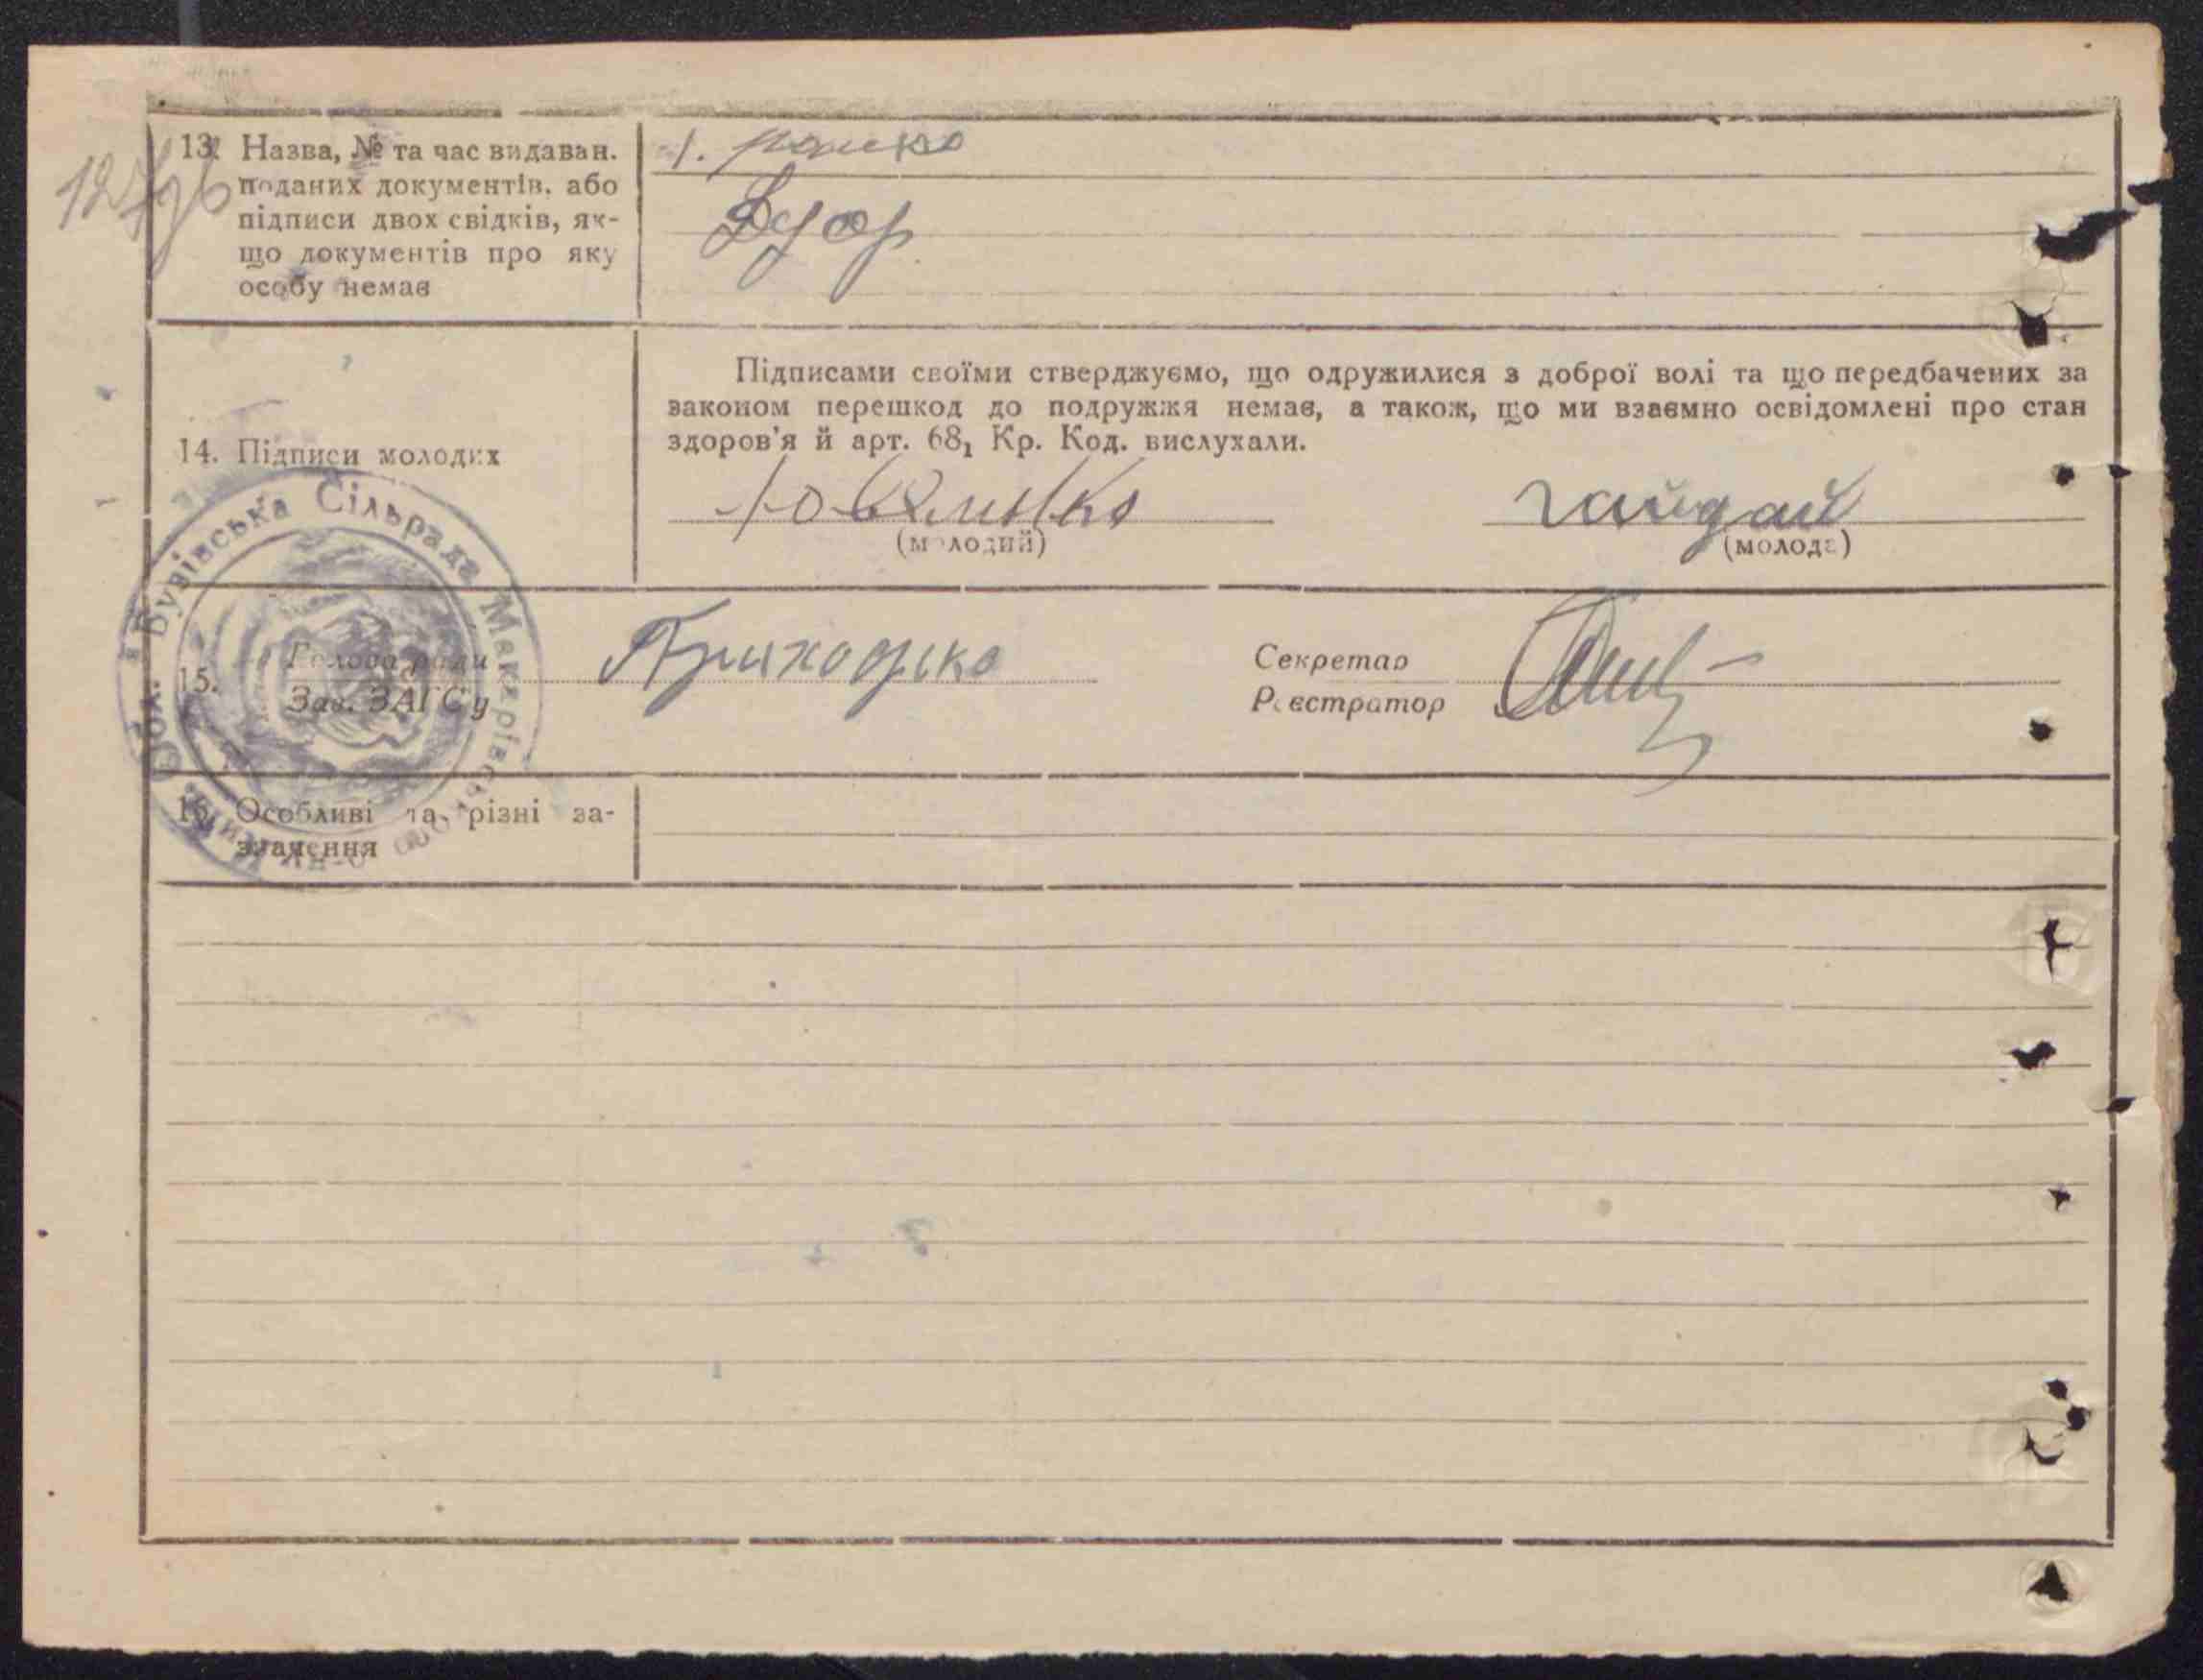 13. Назва, № та час видаван.
поданих документів, або
підписи двох свідків, як-
що документів про яку
особу немає
1.
Підписами своїми стверджуємо, що одружилися з доброї волі та що передбачених за
законом перешкод до подружжя немає, а також, що ми взаємно освідомлені про стан
здоров'я й арт. 68₁ Кр. Код. вислухали.
14. Підписи молодих
гайдай
(молодий) (молода)
Сільрада
15. Голова ради
Зав. ЗАГС'у
Приходько
Секретар
Реєстратор
16. Особливі та різні за-
значення